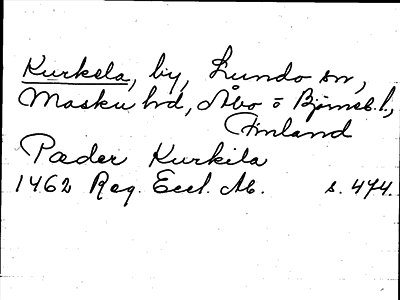 Kurkela, by, Lundo sn,
Masku hd, Åbo o Björneb. l.,
Finland
Pæder Kurkila
1462 Reg. Eccl. Ab. s. 474.